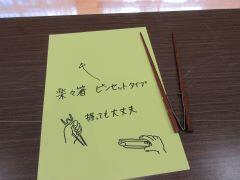 楽々箸 ピンセットタイプ
握っても大丈夫